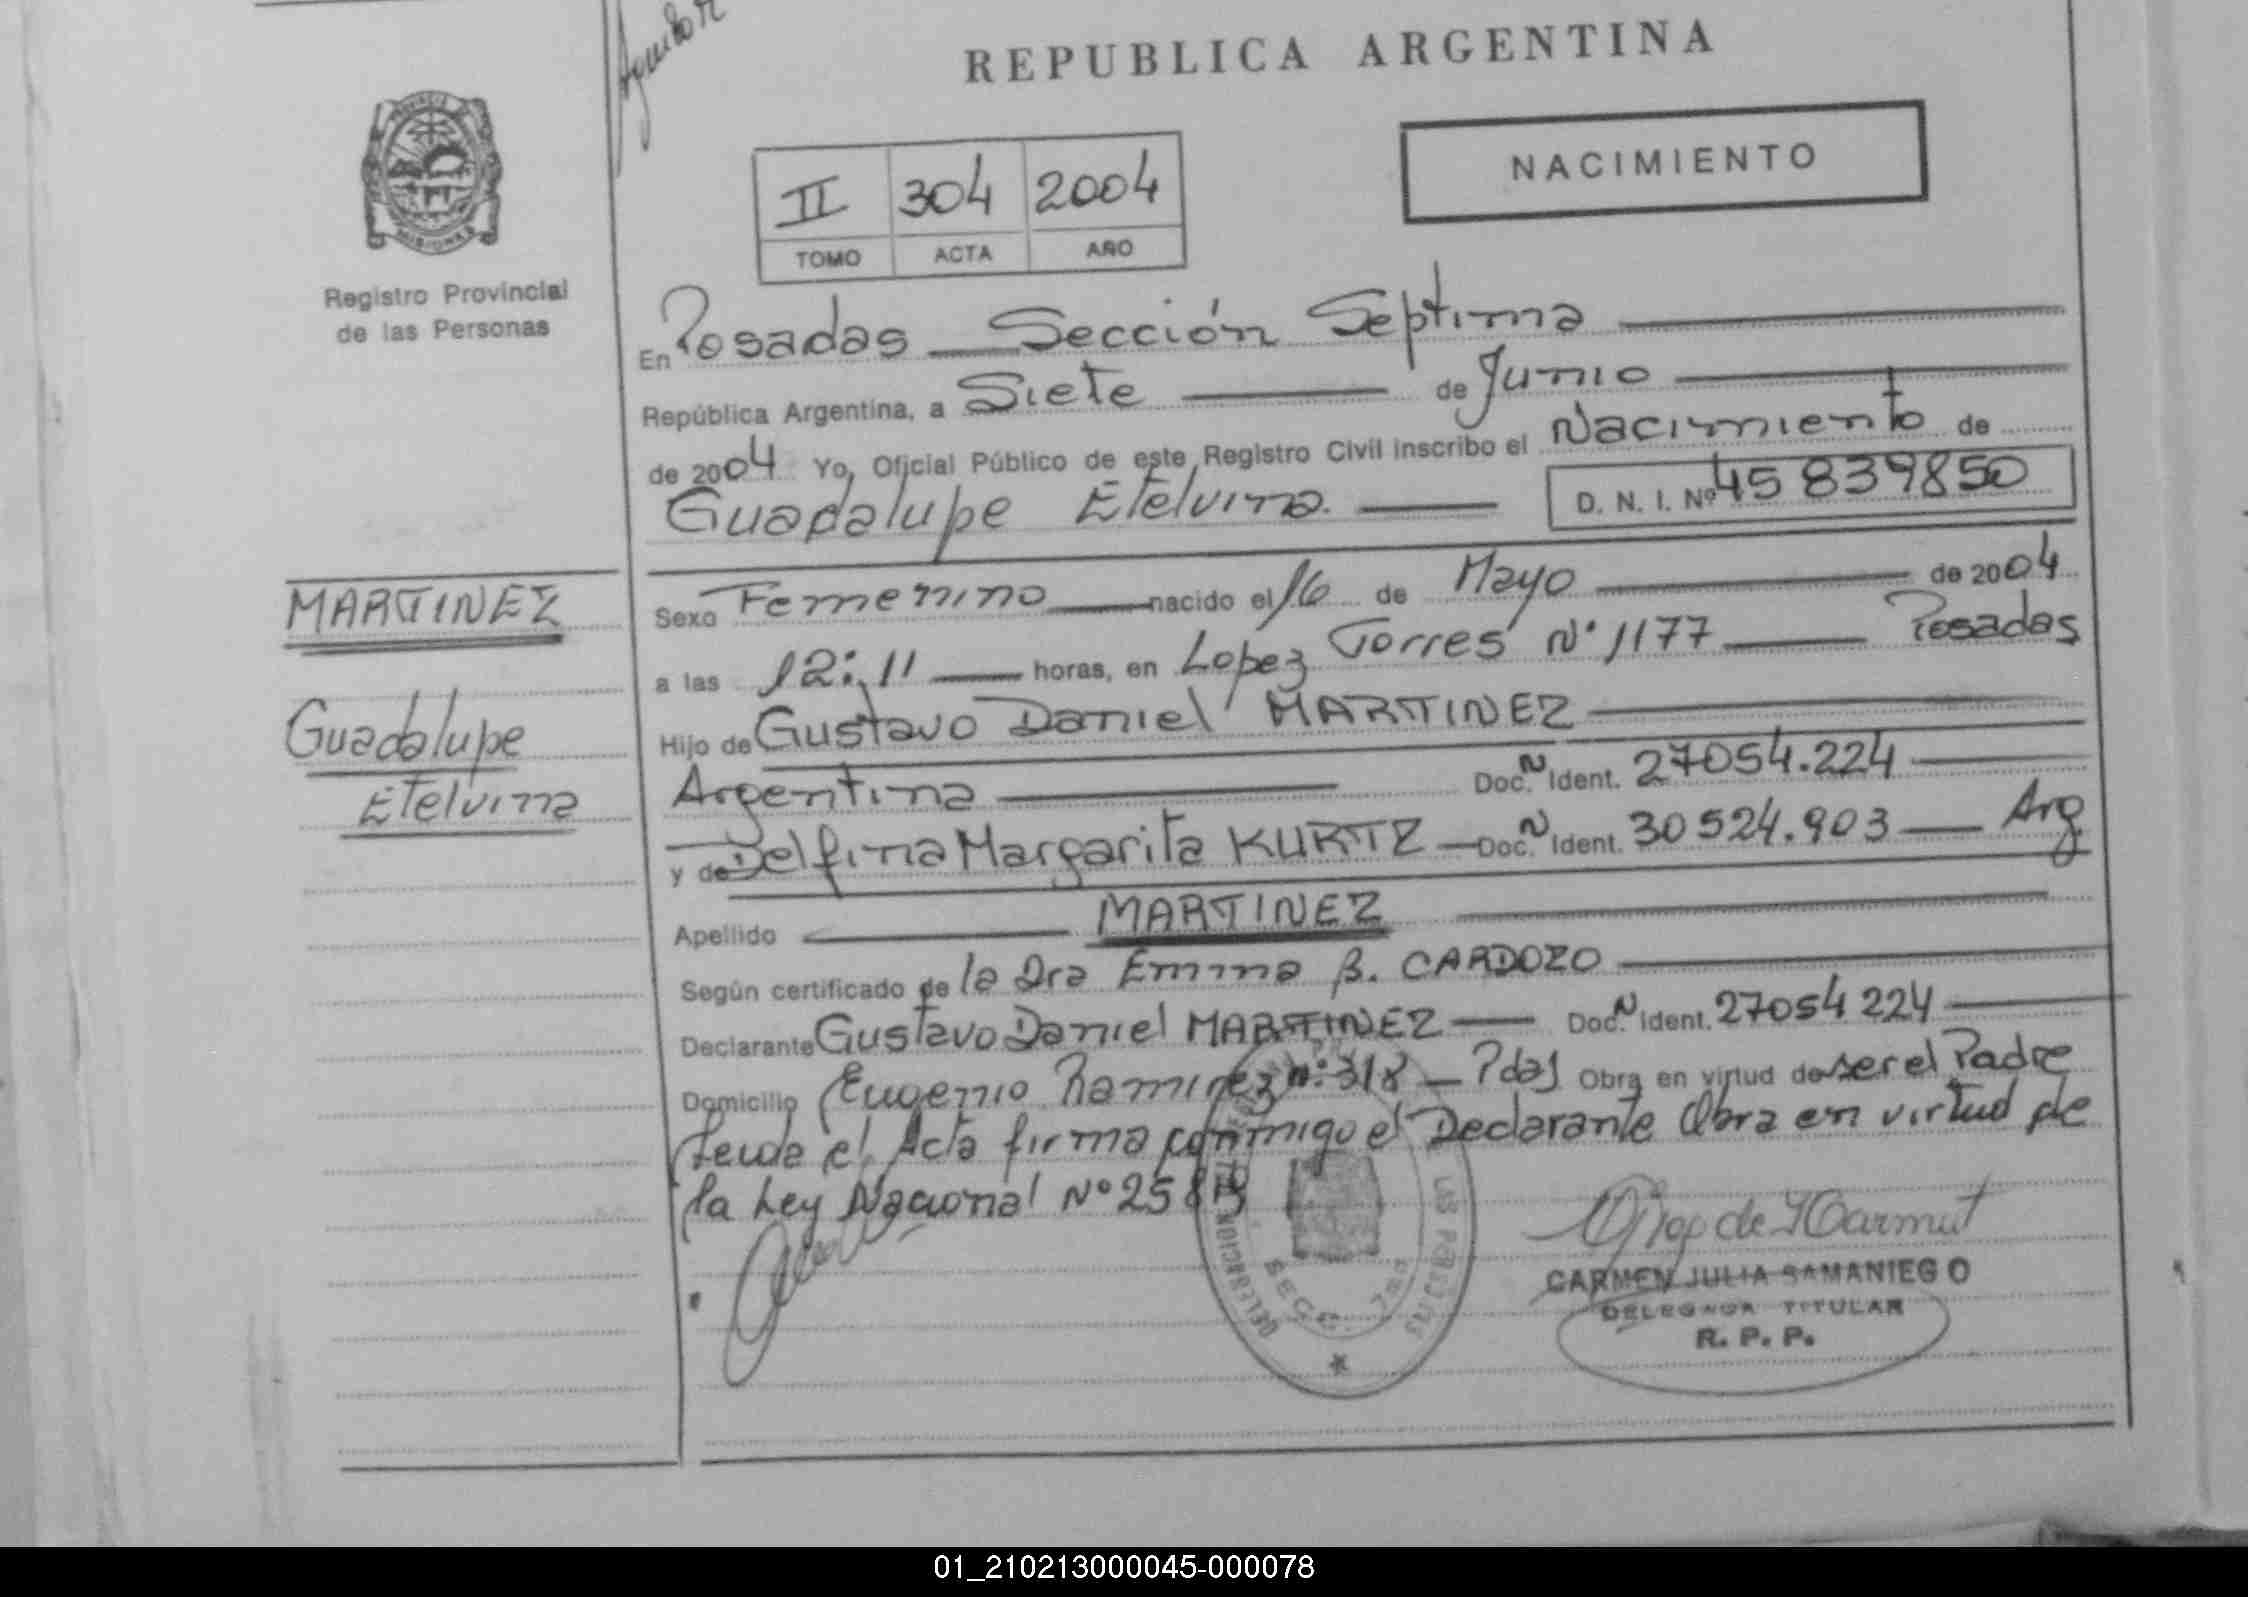 Aguilar
REPUBLICA ARGENTINA
NACIMIENTO
II 304 2004
TOMO ACTA AÑO
Registro Provincial
de las Personas
MISIONES
En Posadas Sección Septima
República Argentina, a Siete de Junio
de 2004 Yo, Oficial Público de este Registro Civil inscribo el Nacimiento de
Guadalupe Etelvina. D. N. I. Nº 45 839850
MARTINEZ
Guadalupe
Etelvina
Sexo Femenino nacido el 16 de Mayo de 2004
a las 12:11 horas, en Lopez Torres N° 1177 Posadas
Hijo de Gustavo Daniel MARTINEZ
Argentina Doc. N Ident. 27054.224
y de Delfina Margarita KURTZ Doc. N Ident. 30524.903 Arg
Apellido MARTINEZ
Según certificado de la Dra Emma B. CARDOZO
Declarante Gustavo Daniel MARTINEZ Doc. N Ident. 27054 224
Domicilio Eugenio Ramirez n: 318 Pdas Obra en virtud de ser el Padre
Leida el Acta firma conmigo el Declarante Obra en virtud de
la Ley Nacional Nº
DELEGACION LAS PERSONAS
SECC. 7ma
CARMEN JULIA SAMANIEGO
DELEGADA TITULAR
R. P. P.
01_210213000045-000078